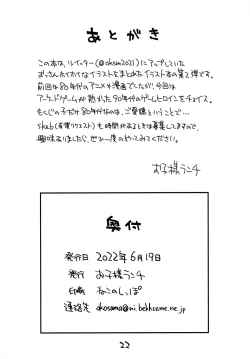 あとがき
この本は、ツイッター(@okosan2021)にアップしていた
おっさんホイホイなイラストをまとめたイラスト本の第2弾です。
前回は80年代のアニメや漫画でしたが、今回は
アーケードゲームが熱かった90年代のゲームヒロインをチョイス。
もくじの子だけ80年代なのは、ご愛嬌ということで…
skeb(有償リクエスト)も時間があるときは募集してますので、
興味ありましたら、ぜひ一度のぞいてみてください。
お子様ランチ
奥付
発行日 2022年6月19日
発行 お子様ランチ
印刷 ねこのしっぽ
連絡先 okosama@wi.bekkoame.ne.jp
22